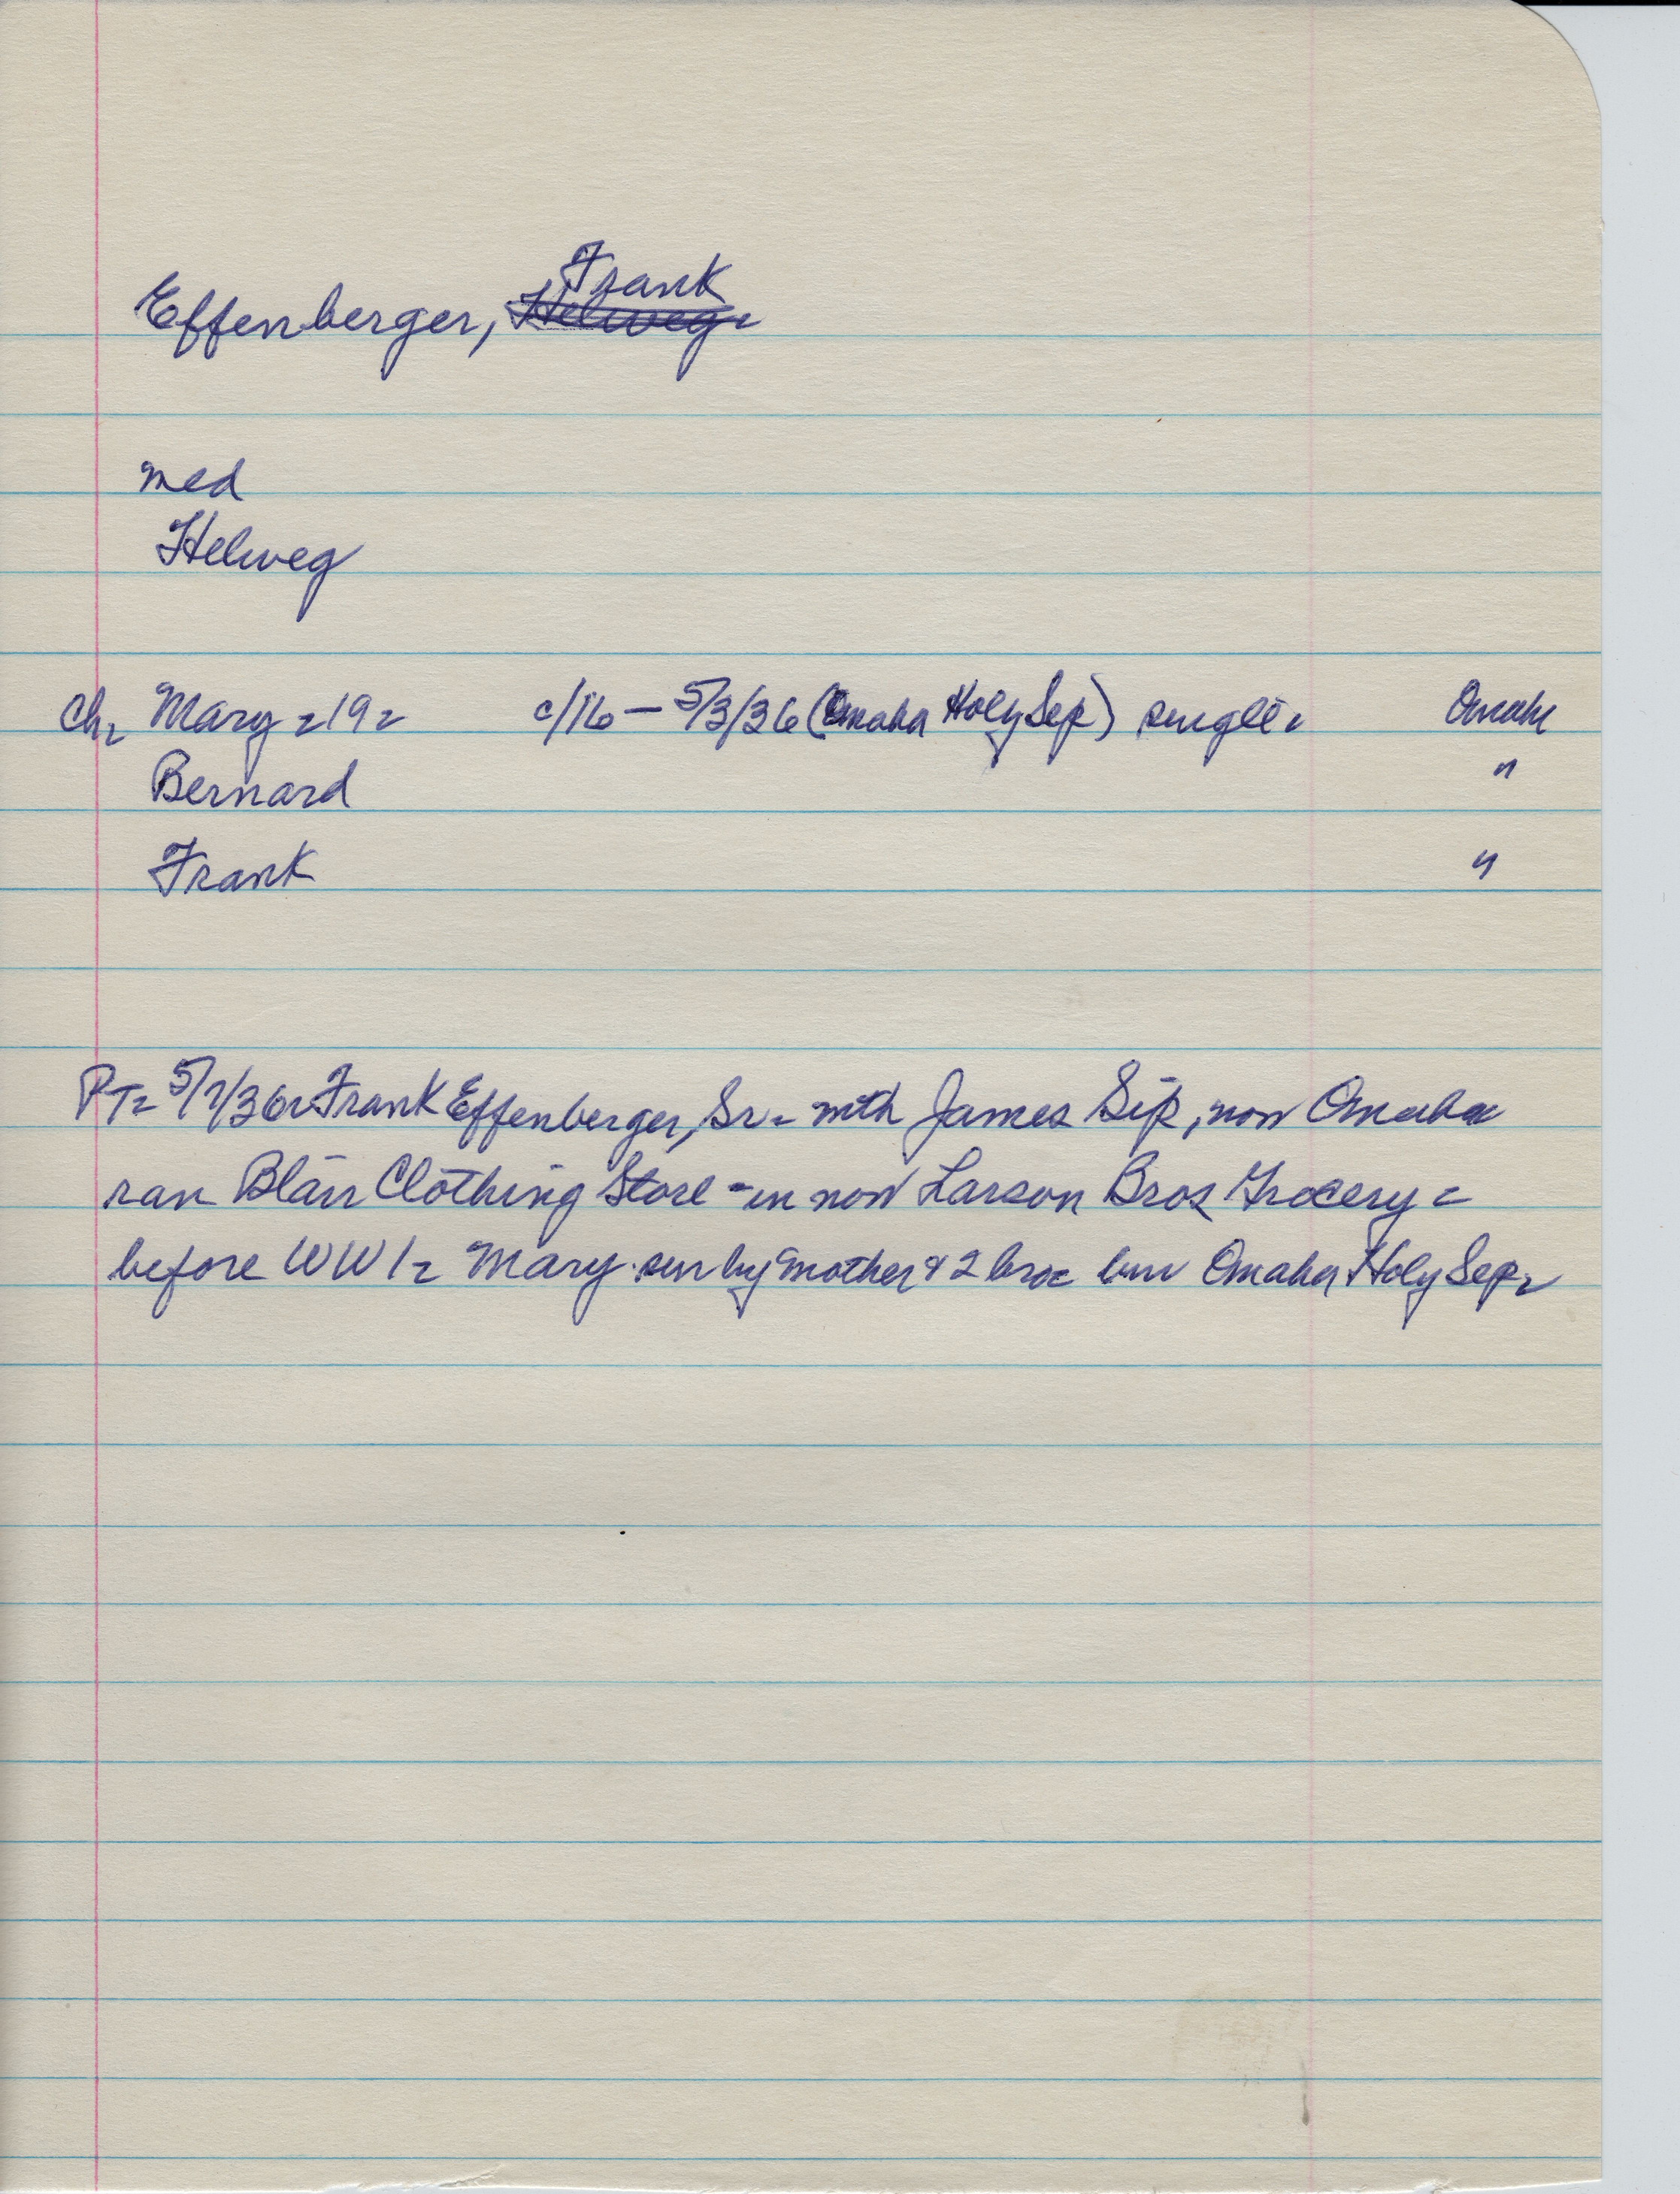 Frank
Effenberger, Helweg-
med
Helweg
Ch- Mary - 19 - c/16 - 5/3/36 (Omaha Holy Sep) single - Omaha
Bernard "
Frank "
PT- 5/7/36 - Frank Effenberger, Sr - with James Sip, now Omaha
ran Blair Clothing Store - in now Larson Bros Grocery -
before WW1 - Mary sur by mother & 2 bros bur Omaha Holy Sep-